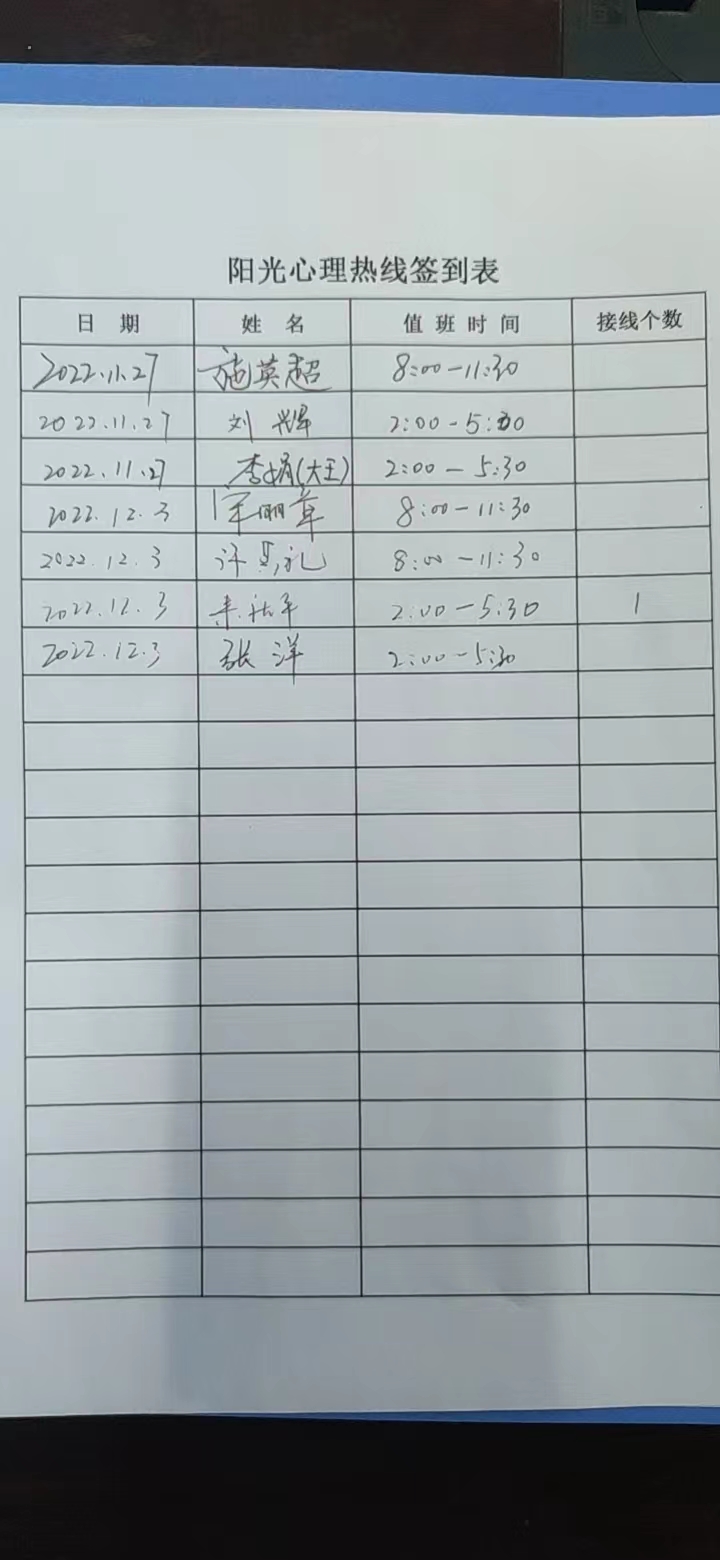 阳光心理热线签到表
日 期 姓 名 值班时间 接线个数
2022.11.27 施英超 8:00-11:30
2022.11.27 刘 辉 2:00-5:30
2022.11.27 李娟(大王) 2:00-5:30
2022.12.3 丽章 8:00-11:30
2022.12.3 许 礼 8:00-11:30
2022.12.3 2:00-5:30 1
2022.12.3 张 洋 2:00-5:30